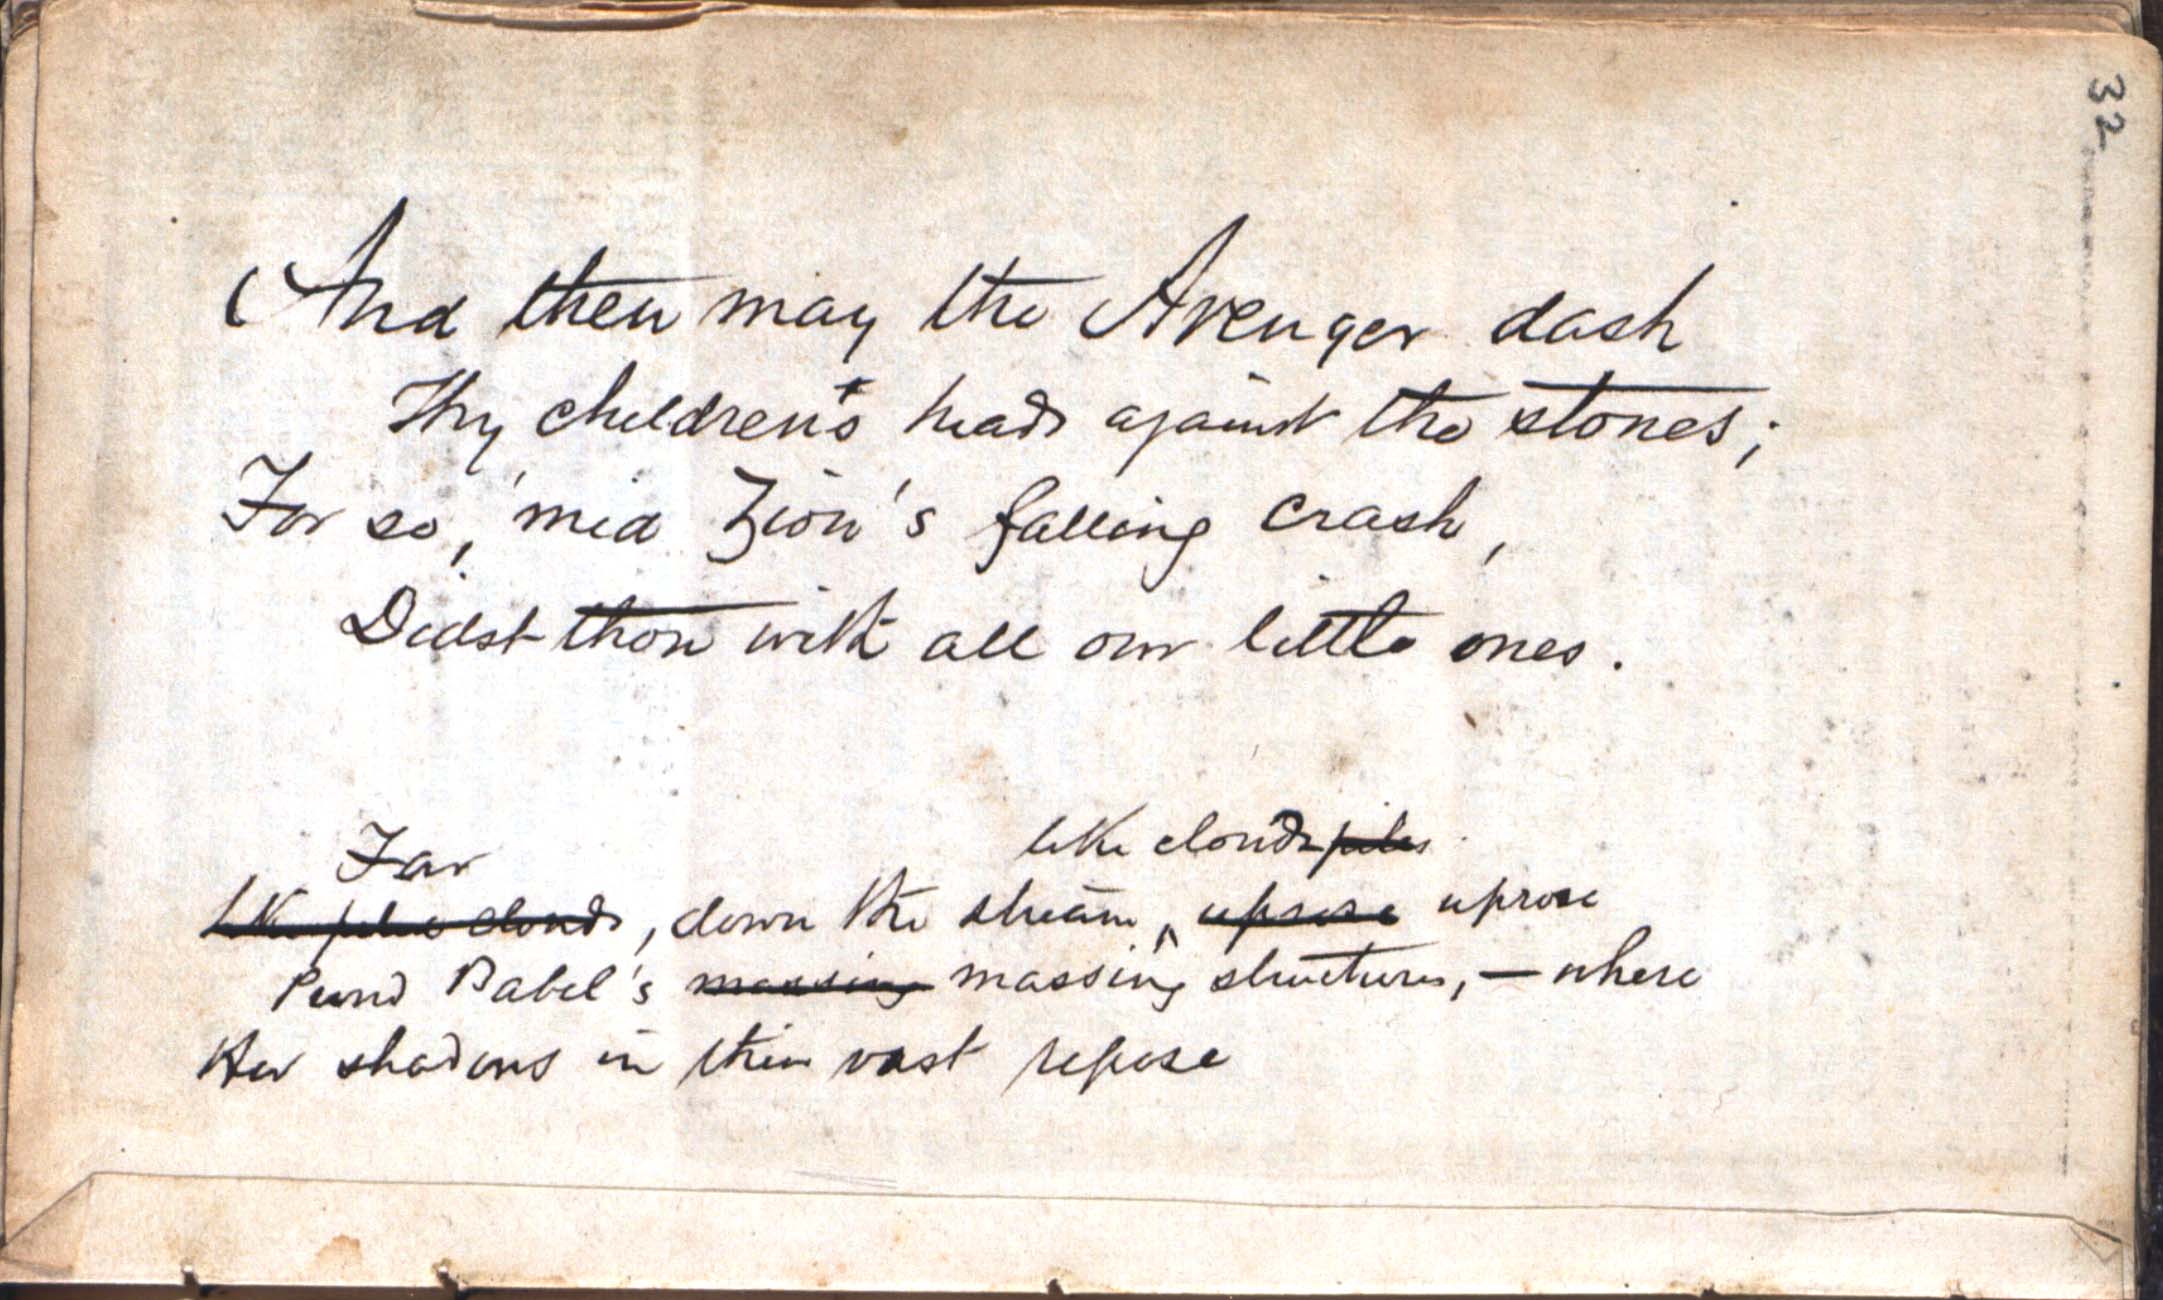 32
And then may the Avenger dash
Thy children's heads against the stones;
For so, 'mid Zion's falling crash,
Didst thou with all our little ones.
Far like clouds piles
like piles clouds, down the stream, ^ uprose uprose
Proud Babel's massing massing structures, — where
Her shadows in their vast repose